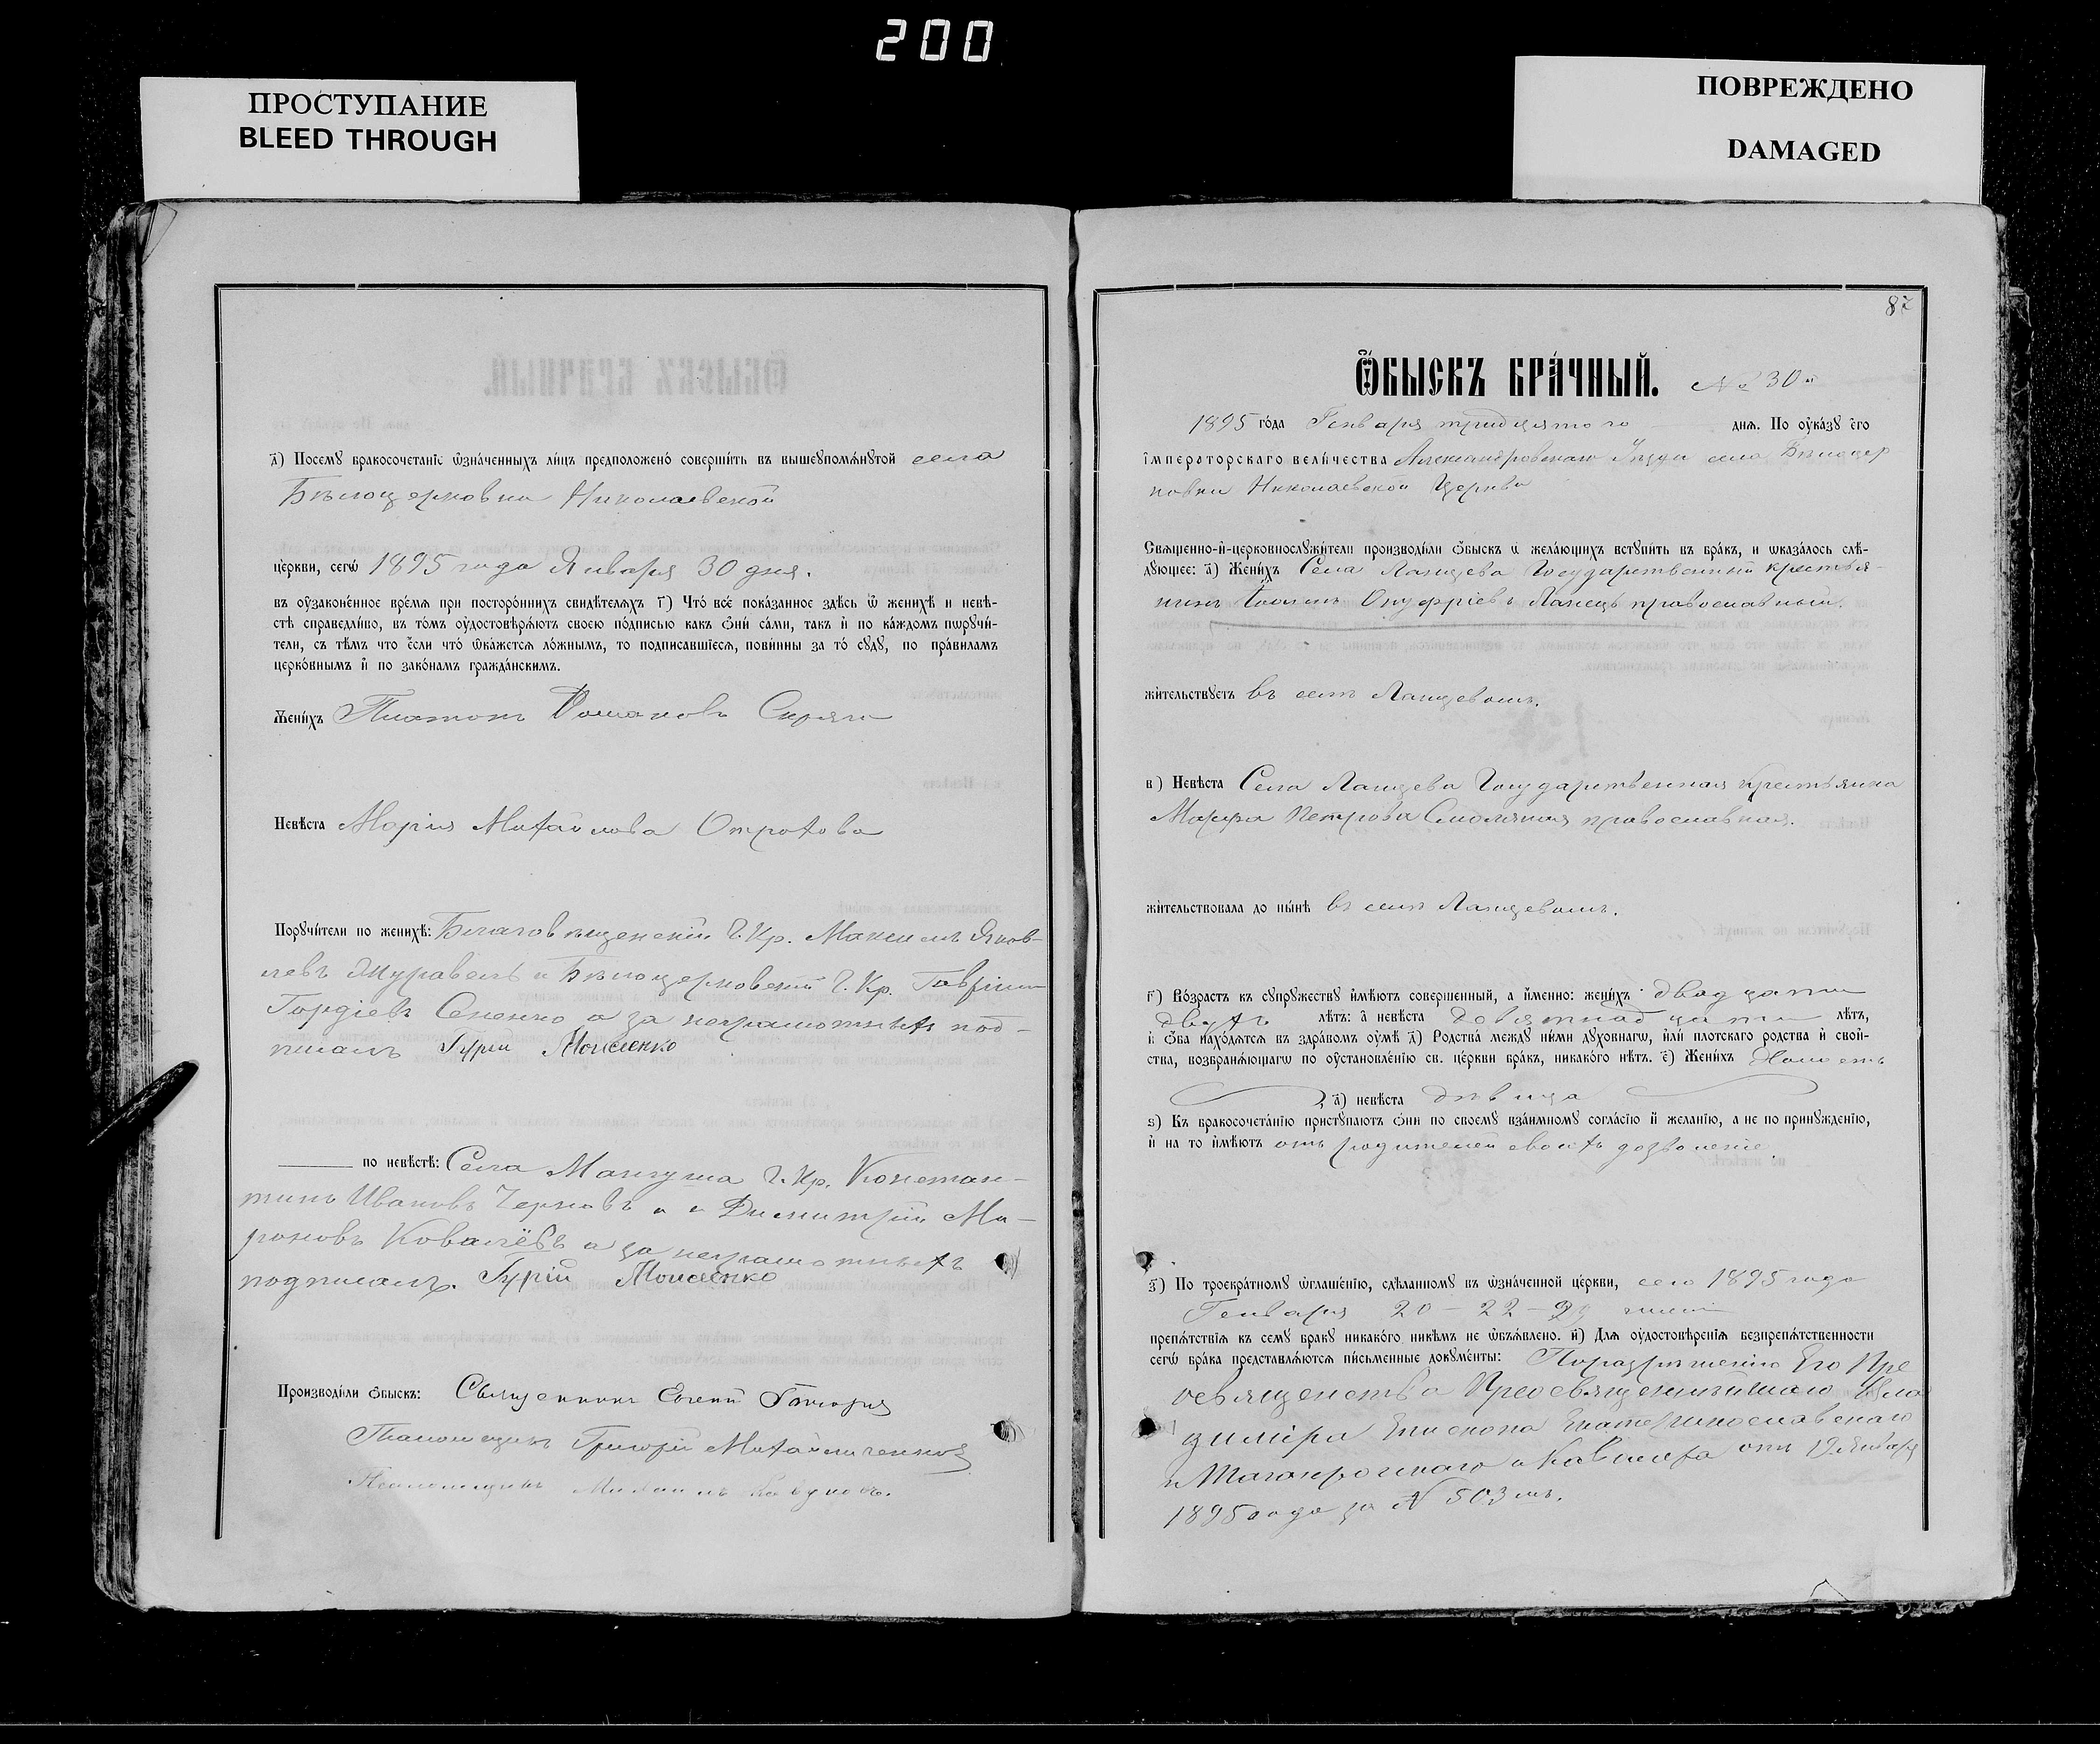 200
ПРОСТУПАНИЕ
BLEED THROUGH
ПОВРЕЖДЕНО
DAMAGED
з҃) Посемꙋ бракосочетанїе ѡзна́ченныхъ ли́цъ предположено́ соверши́ть въ вышеꙋпомѧ́нꙋтой села
Бѣлоцерковки Николаевской
це́ркви, сегѡ̀ 1895 года Января 30 дня.
въ оу҆зако́ненное вре́мѧ при посторо́ннихъ свидѣ́телѧхъ г҃) Что́ все́ пока́занное здѣ́сь ѡ҆ женихѣ̀ и невѣ-
стѣ справедли́во, въ то́мъ оу҆достовѣрѧ́ютъ своею по́дписью какъ ѻ҆ни́ са́ми, такъ и҆ по ка́ждомъ пѡрꙋчи́-
тели, съ тѣ́мъ что́ е҆сли что́ ѡ҆ка́жетсѧ ло́жнымъ, то подписавшїесѧ, пови́нны за то́ сꙋдꙋ̀, по пра́виламъ
церко́внымъ и҆ по зако́намъ гражда́нскимъ.
Жени́хъ Платонъ Романовъ Скряга
Невѣ́ста Марія Михайлова Отрохова
Порꙋчи́тели по женихѣ̀: Благовѣщенскій Г. Кр. Максимъ Яков-
левъ Журавель и Бѣлоцерковскій Г. Кр. Гавріилъ
Гордіевъ Сененко а за неграмотныхъ под-
писалъ Гурій Моисеенко
по невѣ́стѣ: Села Мангуша Г. Кр. Констан-
тинъ Ивановъ Черновъ и Димитрій Ми-
роновъ Ковалёвъ а за неграмотныхъ
подписалъ. Гурій Моисеенко
Производи́ли ѻ҆́быскъ: Священникъ Евгеній
Псаломщикъ Григорій Михайличенко
Псаломщикъ Михаилъ
87
Ѻ҆́быскъ бра́чный. № 30й
1895 го́да Генваря тридцятого днѧ. По оу҆ка́зꙋ е҆го̀
і҆мператорскаго вели́чества Александровскаго Уѣзда села Бѣлоцер
ковки Николаевской Церкви
Свѧщенно-и҆-церковнослꙋжи́тели производи́ли ѻ҆́быскъ ѡ҆ жела́ющихъ встꙋпи́ть въ бра́къ, и ѡказа́лось слѣ́-
дꙋющее: а҃) Жени́хъ Села Ланцева Государственный крестья-
нинъ Іоаннъ Онуфріевъ Ланецъ православный.
жи́тельствꙋетъ въ селѣ Ланцевомъ.
в҃) Невѣ́ста Села Ланцева Государственная крестьянка
Марфа Петрова православная.
жи́тельствовала до ны́нѣ въ селѣ Ланцевомъ.
г҃) Во́зрастъ къ сꙋпрꙋжествꙋ и҆мѣ́ютъ соверше́нный, а и҆́менно: жени́хъ двадцати
двухъ лѣтъ: а҆ невѣста девятнадцати лѣтъ,
и҆ ѻ҆́ба нахо́дѧтсѧ въ здра́вомъ оу҆мѣ̀ д҃) Родства̀ междꙋ ни́ми дꙋхо́внагѡ, и҆ли́ плотскаго родства и҆ свой-
ства, возбранѧ́ющагѡ по оу҆становле́нїю св. це́ркви бра́къ, никако́го нѣ́тъ. е҃) Жени́хъ Холостъ
а҃) невѣ́ста дѣвица
ѕ҃) Къ бракосочета́нїю пристꙋпаютъ ѻ҆ни́ по своемꙋ вза́имномꙋ согла́сїю и҆ желанїю, а не по принꙋжде́нїю,
и҆ на то и҆мѣ́ютъ отъ родителей своихъ дозволеніе.
з҃) По троекра́тномꙋ ѡглаше́нїю, сдѣ́ланномꙋ въ ѡзна́ченной це́ркви, сего 1895 года
Генваря 20 - 22 - 29 числъ
препѧ́тствїѧ къ семꙋ̀ браку никако́го никѣ́мъ не ѡбъѧ́влено. и҃) Длѧ оу҆достовѣ́ренїѧ безпрепѧ́тственности
сегѡ̀ бра́ка представлѧ́ютсѧ пи́сьменные докꙋме́нты: По разрѣшенію Его Пре
освященства Преосвященнѣйшаго Вла
димира Епископа Екатеринославскаго
и Таганрогскаго и Кавалера отъ 12 Января
1895 года за № 503мъ.